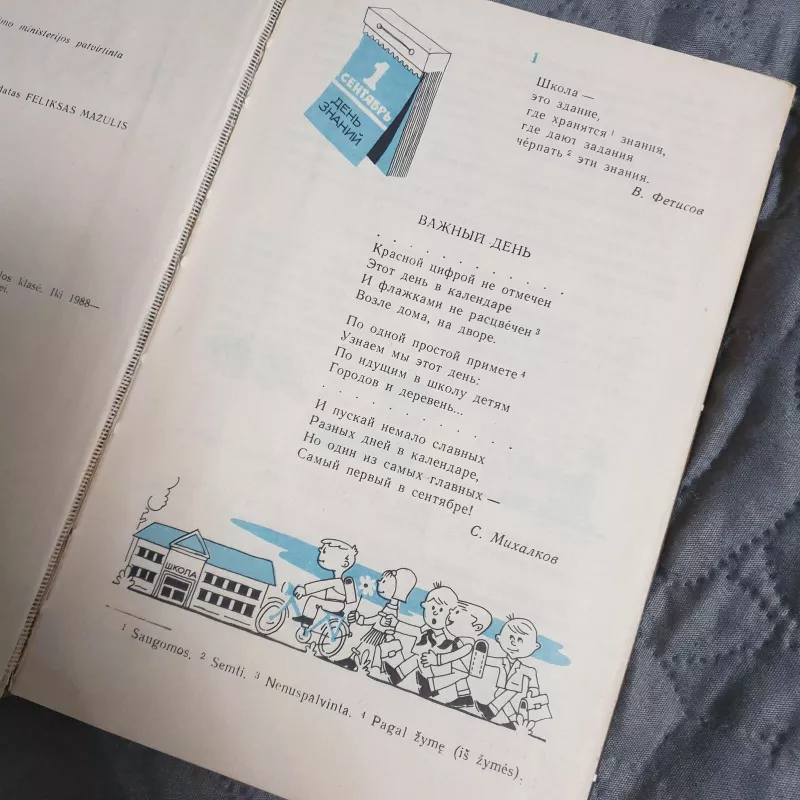 mo ministerijos patvirtinta
datas FELIKSAS MAŽULIS
los klasė. Iki 1988—
ei.
1
СЕНТЯБРЬ
ДЕНЬ
ЗНАНИЙ
1
Школа —
это здание,
где хранятся ¹ знания,
где дают задания
че́рпать ² эти знания.
В. Фетисов
ВАЖНЫЙ ДЕНЬ
. . . . . . . . . . . .
Красной цифрой не отмечен
Этот день в календаре
И флажками не расцве́чен ³
Возле дома, на дворе.
По одной простой примете ⁴
Узнаем мы этот день:
По идущим в школу детям
Городов и деревень...
. . . . . . . . . . . .
И пускай немало славных
Разных дней в календаре,
Но один из самых главных —
Самый первый в сентябре!
С. Михалков
ШКОЛА
¹ Saugomos. ² Semti. ³ Nenuspalvinta. ⁴ Pagal žymę (iš žymės).